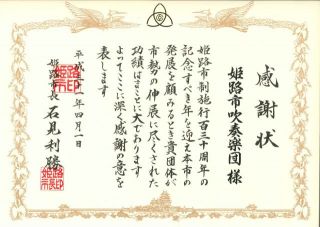 感謝状
姫路市吹奏楽団 様
姫路市制施行百三十周年の
記念すべき年を迎え本市の
発展を顧みるとき貴団体が
市勢の伸展に尽くされた
功績はまことに大であります
よってここに深く感謝の意を
表します
平成三十一年四月一日
姫路市長 石見利勝